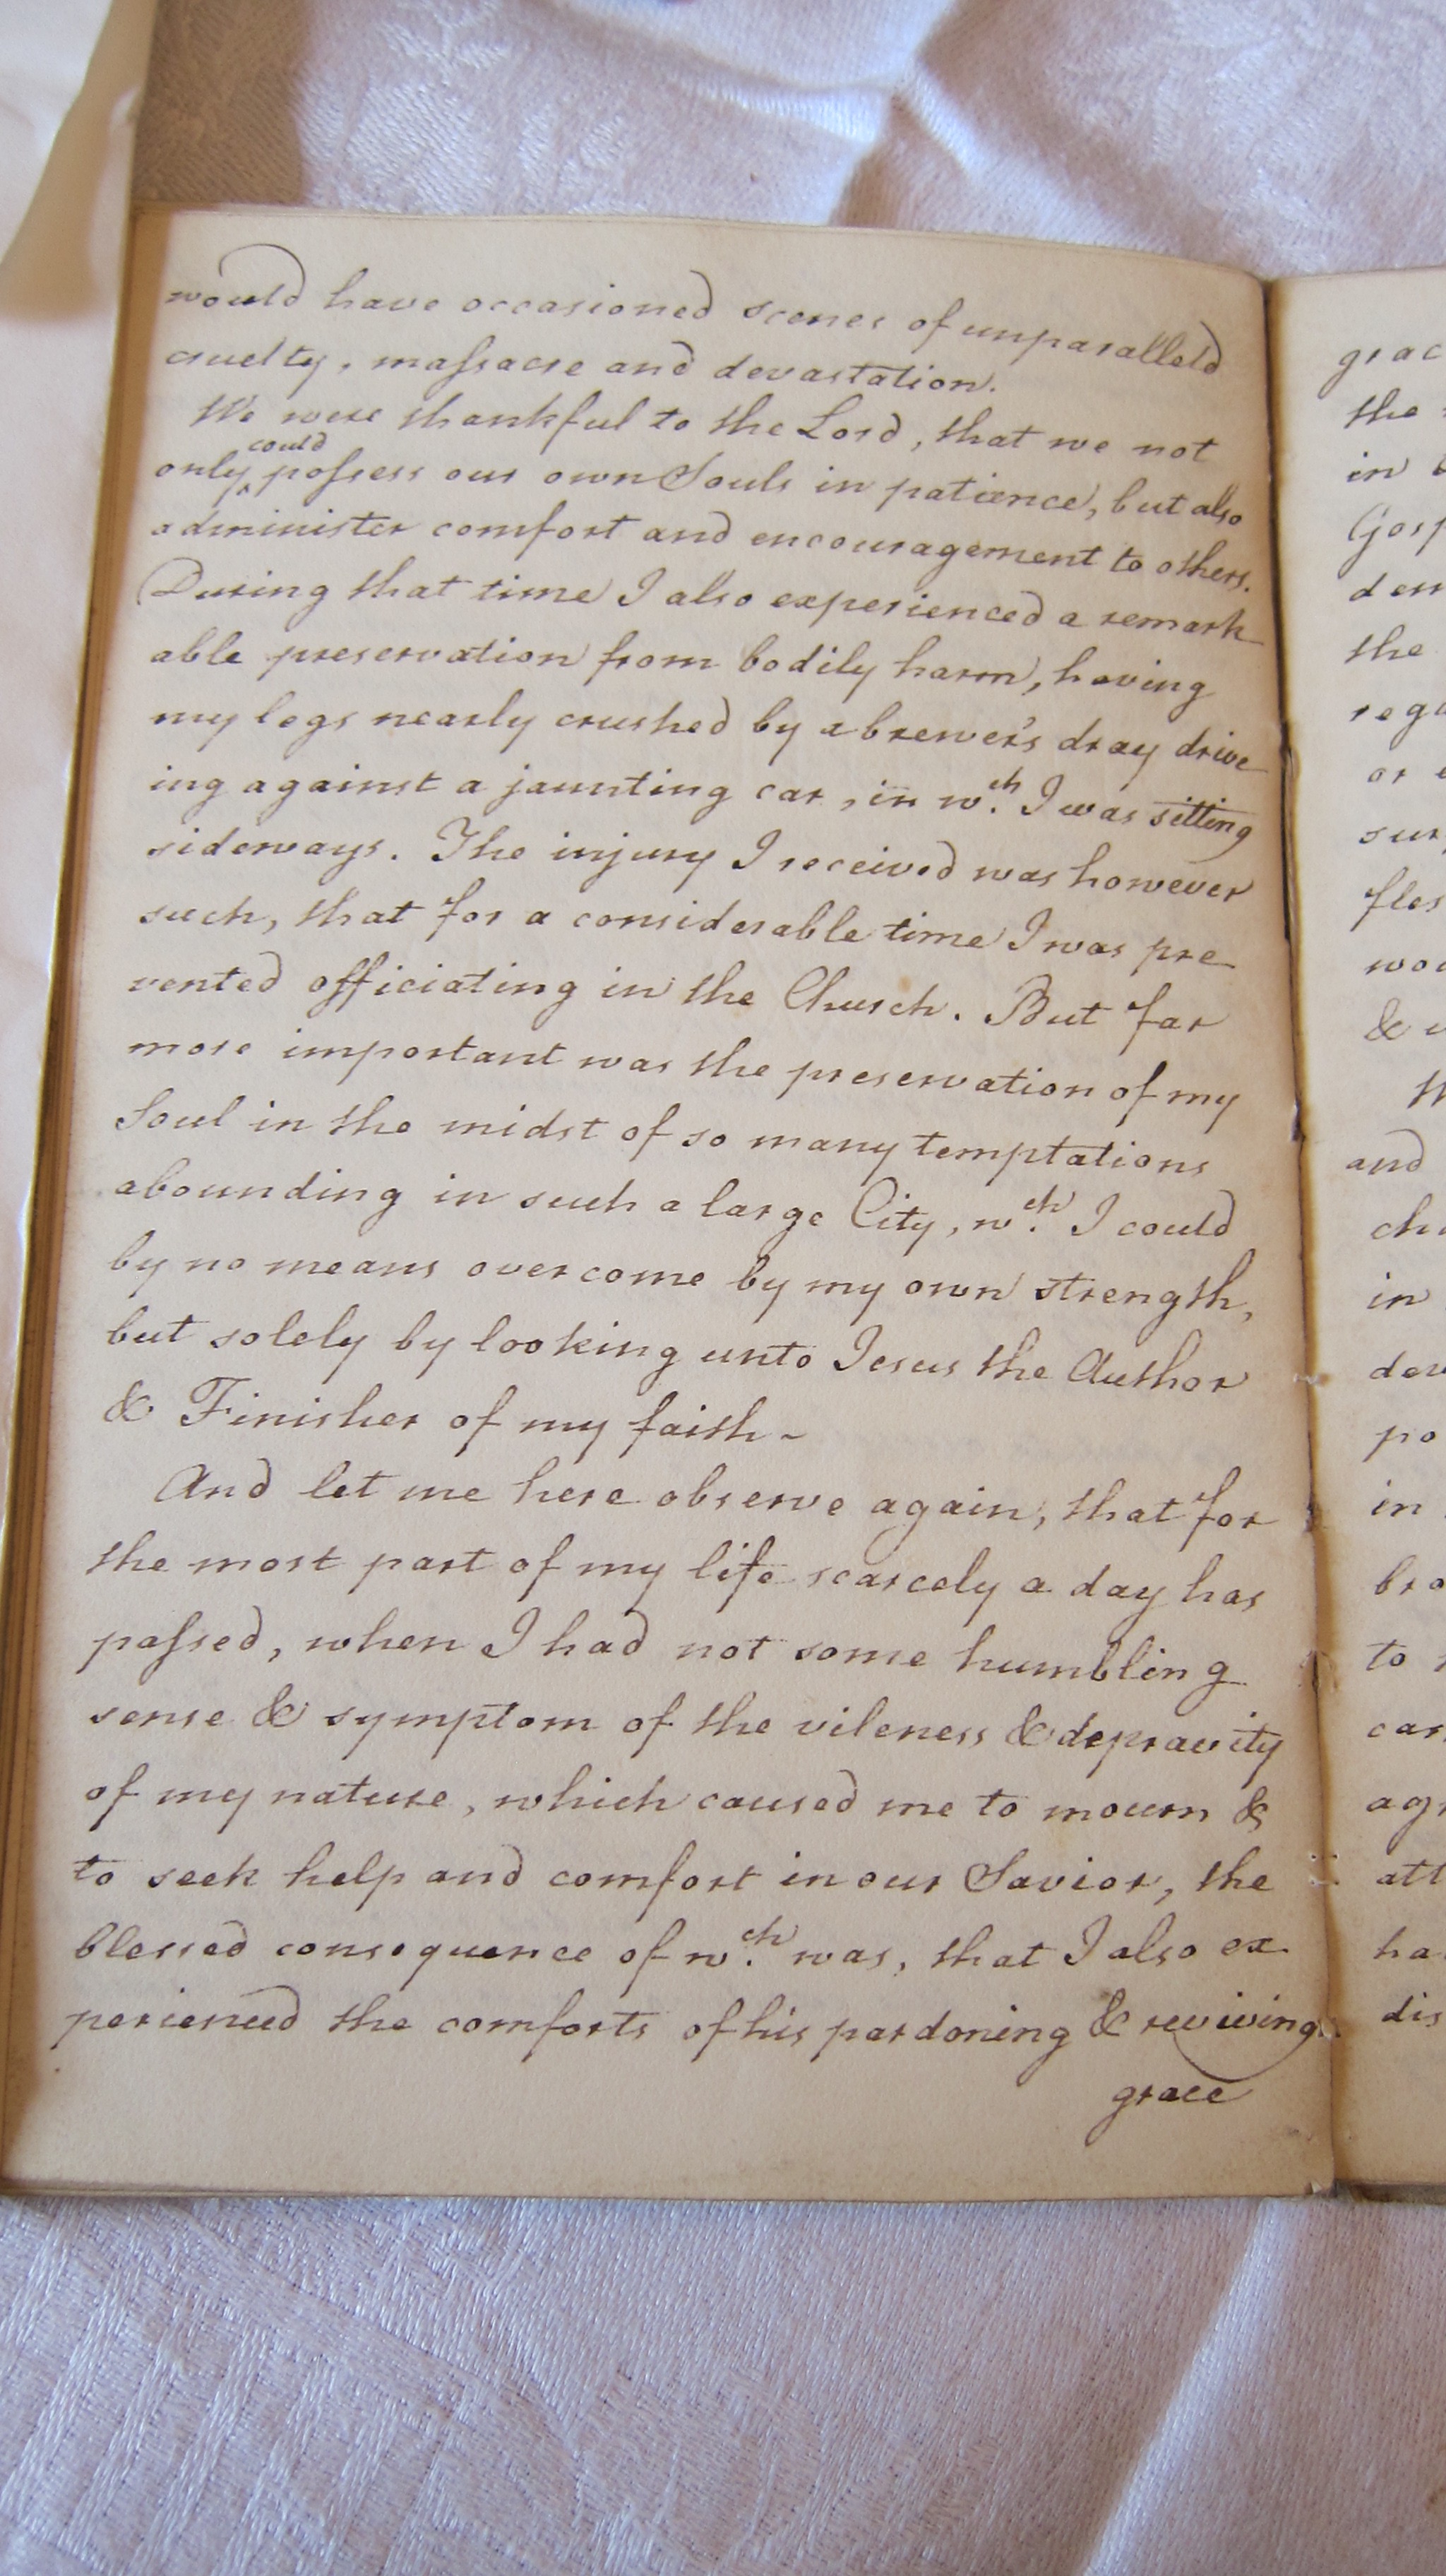 would have occasioned scenes of unparalleld
cruelty, maſsacre and devastation.
We were thankful to the Lord, that we not
could
only ‸ poſsess our own Souls in patience, but also
administer comfort and encouragement to others.
During that time I also experienced a remark
able preservation from bodily harm, having
my legs nearly crushed by a brewer's dray drive
ing against a jaunting car, in w.ch I was sitting
sideways. The injury I received was however
such, that for a considerable time I was pre
vented officiating in the Church. But far
more important was the preservation of my
Soul in the midst of so many temptations
abounding in such a large City, w.ch I could
by no means overcome by my own strength,
but solely by looking unto Jesus the Author
& Finisher of my faith -
And let me here observe again, that for
the most part of my life scarcely a day has
paſsed, when I had not some humbling
sense & symptom of the vileness & depravity
of my nature, which caused me to mourn &
to seek help and comfort in our Savior, the
blessed consequence of w.ch was, that I also ex
perienced the comforts of his pardoning & reviving
grace
grac
the
in
Gosp
den
the
regu
or
sur
fles
wou
&
and
chu
in
dev
po
in
bro
to
car
agr
att
ha
dis